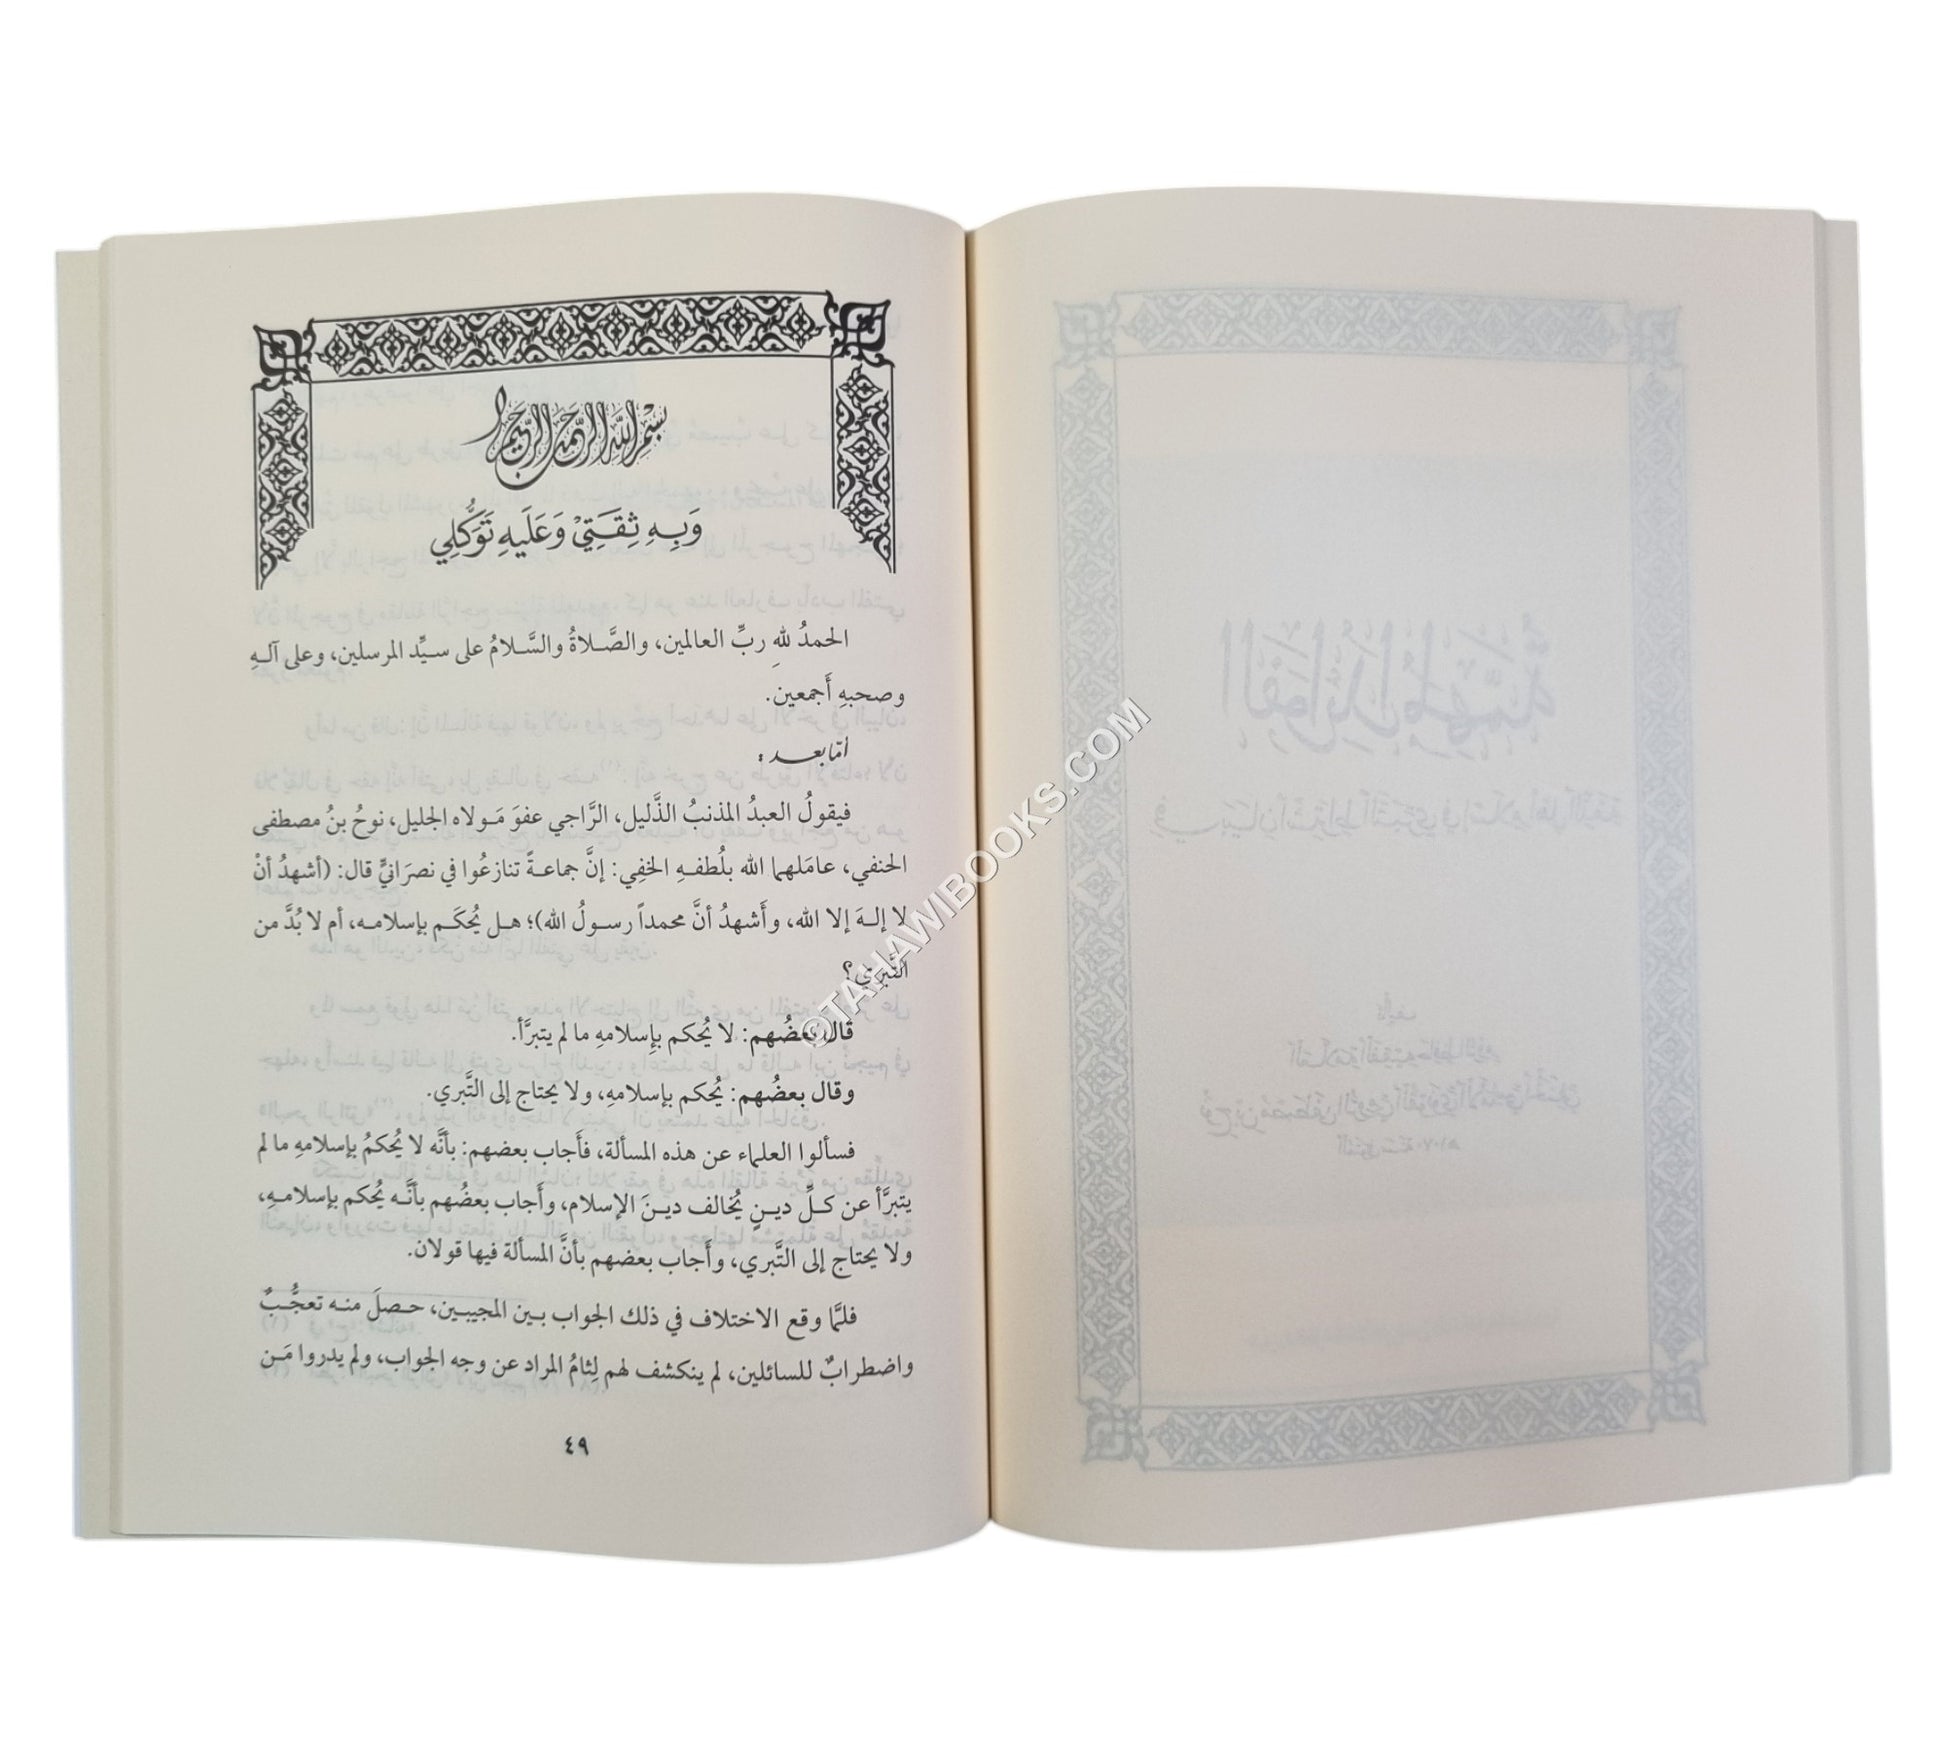 بسم الله الرحمن الرحيم
وَبِهِ ثِقَتِيْ وَعَلَيهِ تَوَكُّلِي
الحمدُ للهِ ربِّ العالمين، والصَّلاةُ والسَّلامُ على سيِّد المرسلين، وعلى آلهِ
وصحبهِ أَجمعين.
أمّا بعد :
فيقولُ العبدُ المذنبُ الذَّليل، الرَّاجي عفوَ مَولاه الجليل، نوحُ بنُ مصطفى
الحنفي، عامَلهما الله بلُطفهِ الخفِي: إنَّ جماعةً تنازعُوا في نصرَانيٍّ قال: (أشهدُ أنْ
لا إلهَ إلا الله، وأَشهدُ أنَّ محمداً رسولُ الله)؛ هل يُحكَم بإسلامه، أم لا بُدَّ من
التَّبرِي؟
قال بعضُهم: لا يُحكم بإِسلامهِ ما لم يتبرَّأ.
وقال بعضُهم: يُحكم بإسلامهِ، ولا يحتاج إلى التَّبري.
فسألوا العلماء عن هذه المسألة، فأَجاب بعضهم: بأنَّه لا يُحكمُ بإسلامهِ ما لم
يتبرَّأ عن كلِّ دينٍ يُخالف دينَ الإسلام، وأَجاب بعضُهم بأنَّه يُحكم بإسلامهِ،
ولا يحتاج إلى التَّبري، وأَجاب بعضهم بأنَّ المسألة فيها قولان.
فلمَّا وقع الاختلاف في ذلك الجواب بين المجيبين، حصلَ منه تعجُّبٌ
واضطرابٌ للسائلين، لم ينكشف لهم لِثامُ المراد عن وجه الجواب، ولم يدروا مَن
٤٩
©TAHAWIBOOKS.COM